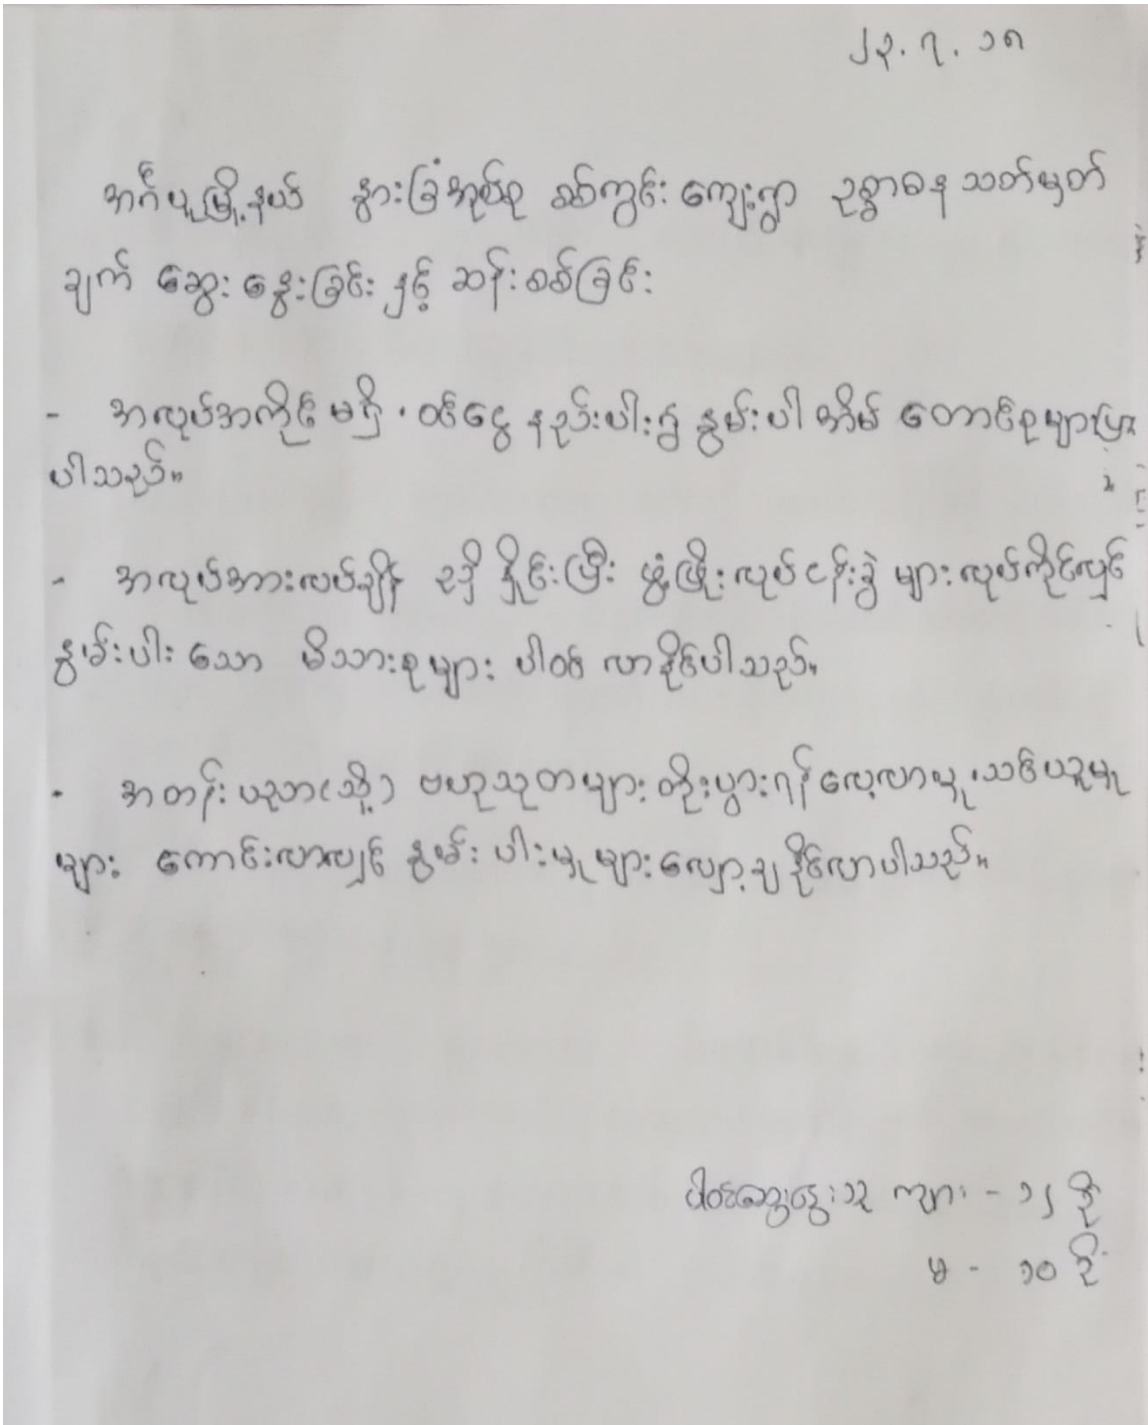 ၂၃.၇.၁၈
အင်္ဂပူမြို့နယ် နွားခြံအုပ်စု စစ်ကွင်းကျေးရွာ ဥစ္စာဓနသတ်မှတ်
ချက် ဆွေးနွေးခြင်းနှင့် ဆန်းစစ်ခြင်း
- အလုပ်အကိုင်မရှိ၊ ဝင်ငွေ နည်းပါး၍ နွမ်းပါအိမ် ထောင်စုများ
ပါသည်။
- အလုပ်အားလပ်ချိန် ညှိနှိုင်းပြီး ဖွံ့ဖြိုးလုပ်ငန်းခွဲ များလုပ်ကိုင်လျှင်
နွမ်းပါး သော မိသားစုများ ပါဝင် လာနိုင်ပါသည်။
- အတန်းပညာ(သို့) ဗဟုသုတများ တိုးပွားရန်လေ့လာမှု၊သင်ယူမှု
များ ကောင်းလာလျှင် နွမ်းပါးမှုများလျော့ချနိုင်လာပါသည်။
ပါဝင်ဆွေးနွေးသူ ကျား - ၁၂ ဦး
မ - ၁၀ ဦး